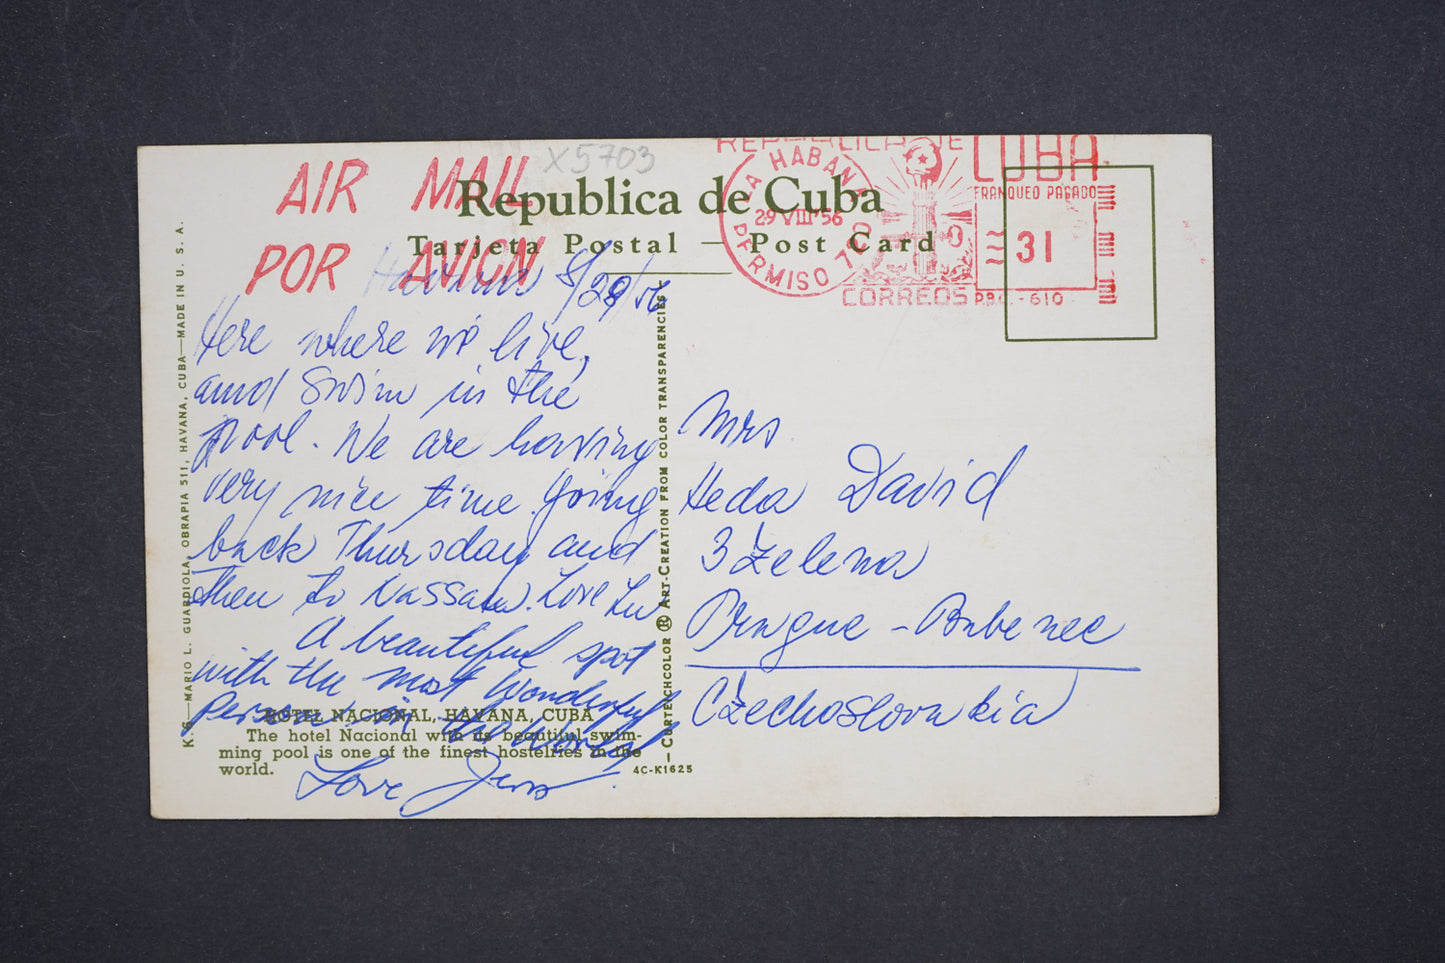 AIR MAIL
POR AVION
X5703
Republica de Cuba
Tarjeta Postal — Post Card
REPUBLICA DE CUBA
LA HABANA
29 VIII 56
PERMISO 700
FRANQUEO PAGADO
31
CORREOS P.B.C. - 610
Havana 8/29/56
Here where we live,
and swim in the
pool. We are having
very nice time. Going
back Thursday and
then to Nassau. Love Lu
A beautiful spot
with the most wonderful
person in the world
Love
Mrs
Heda David
3 Zelena
Prague - Bubenec
Czechoslovakia
HOTEL NACIONAL, HAVANA, CUBA
The hotel Nacional with its beautiful swim-
ming pool is one of the finest hostelries in the
world.
4C-K1625
K. 6—MARIO L. GUARDIOLA, OBRAPIA 511, HAVANA, CUBA—MADE IN U. S. A.
—CURTEICHCOLOR ® ART-CREATION FROM COLOR TRANSPARENCIES